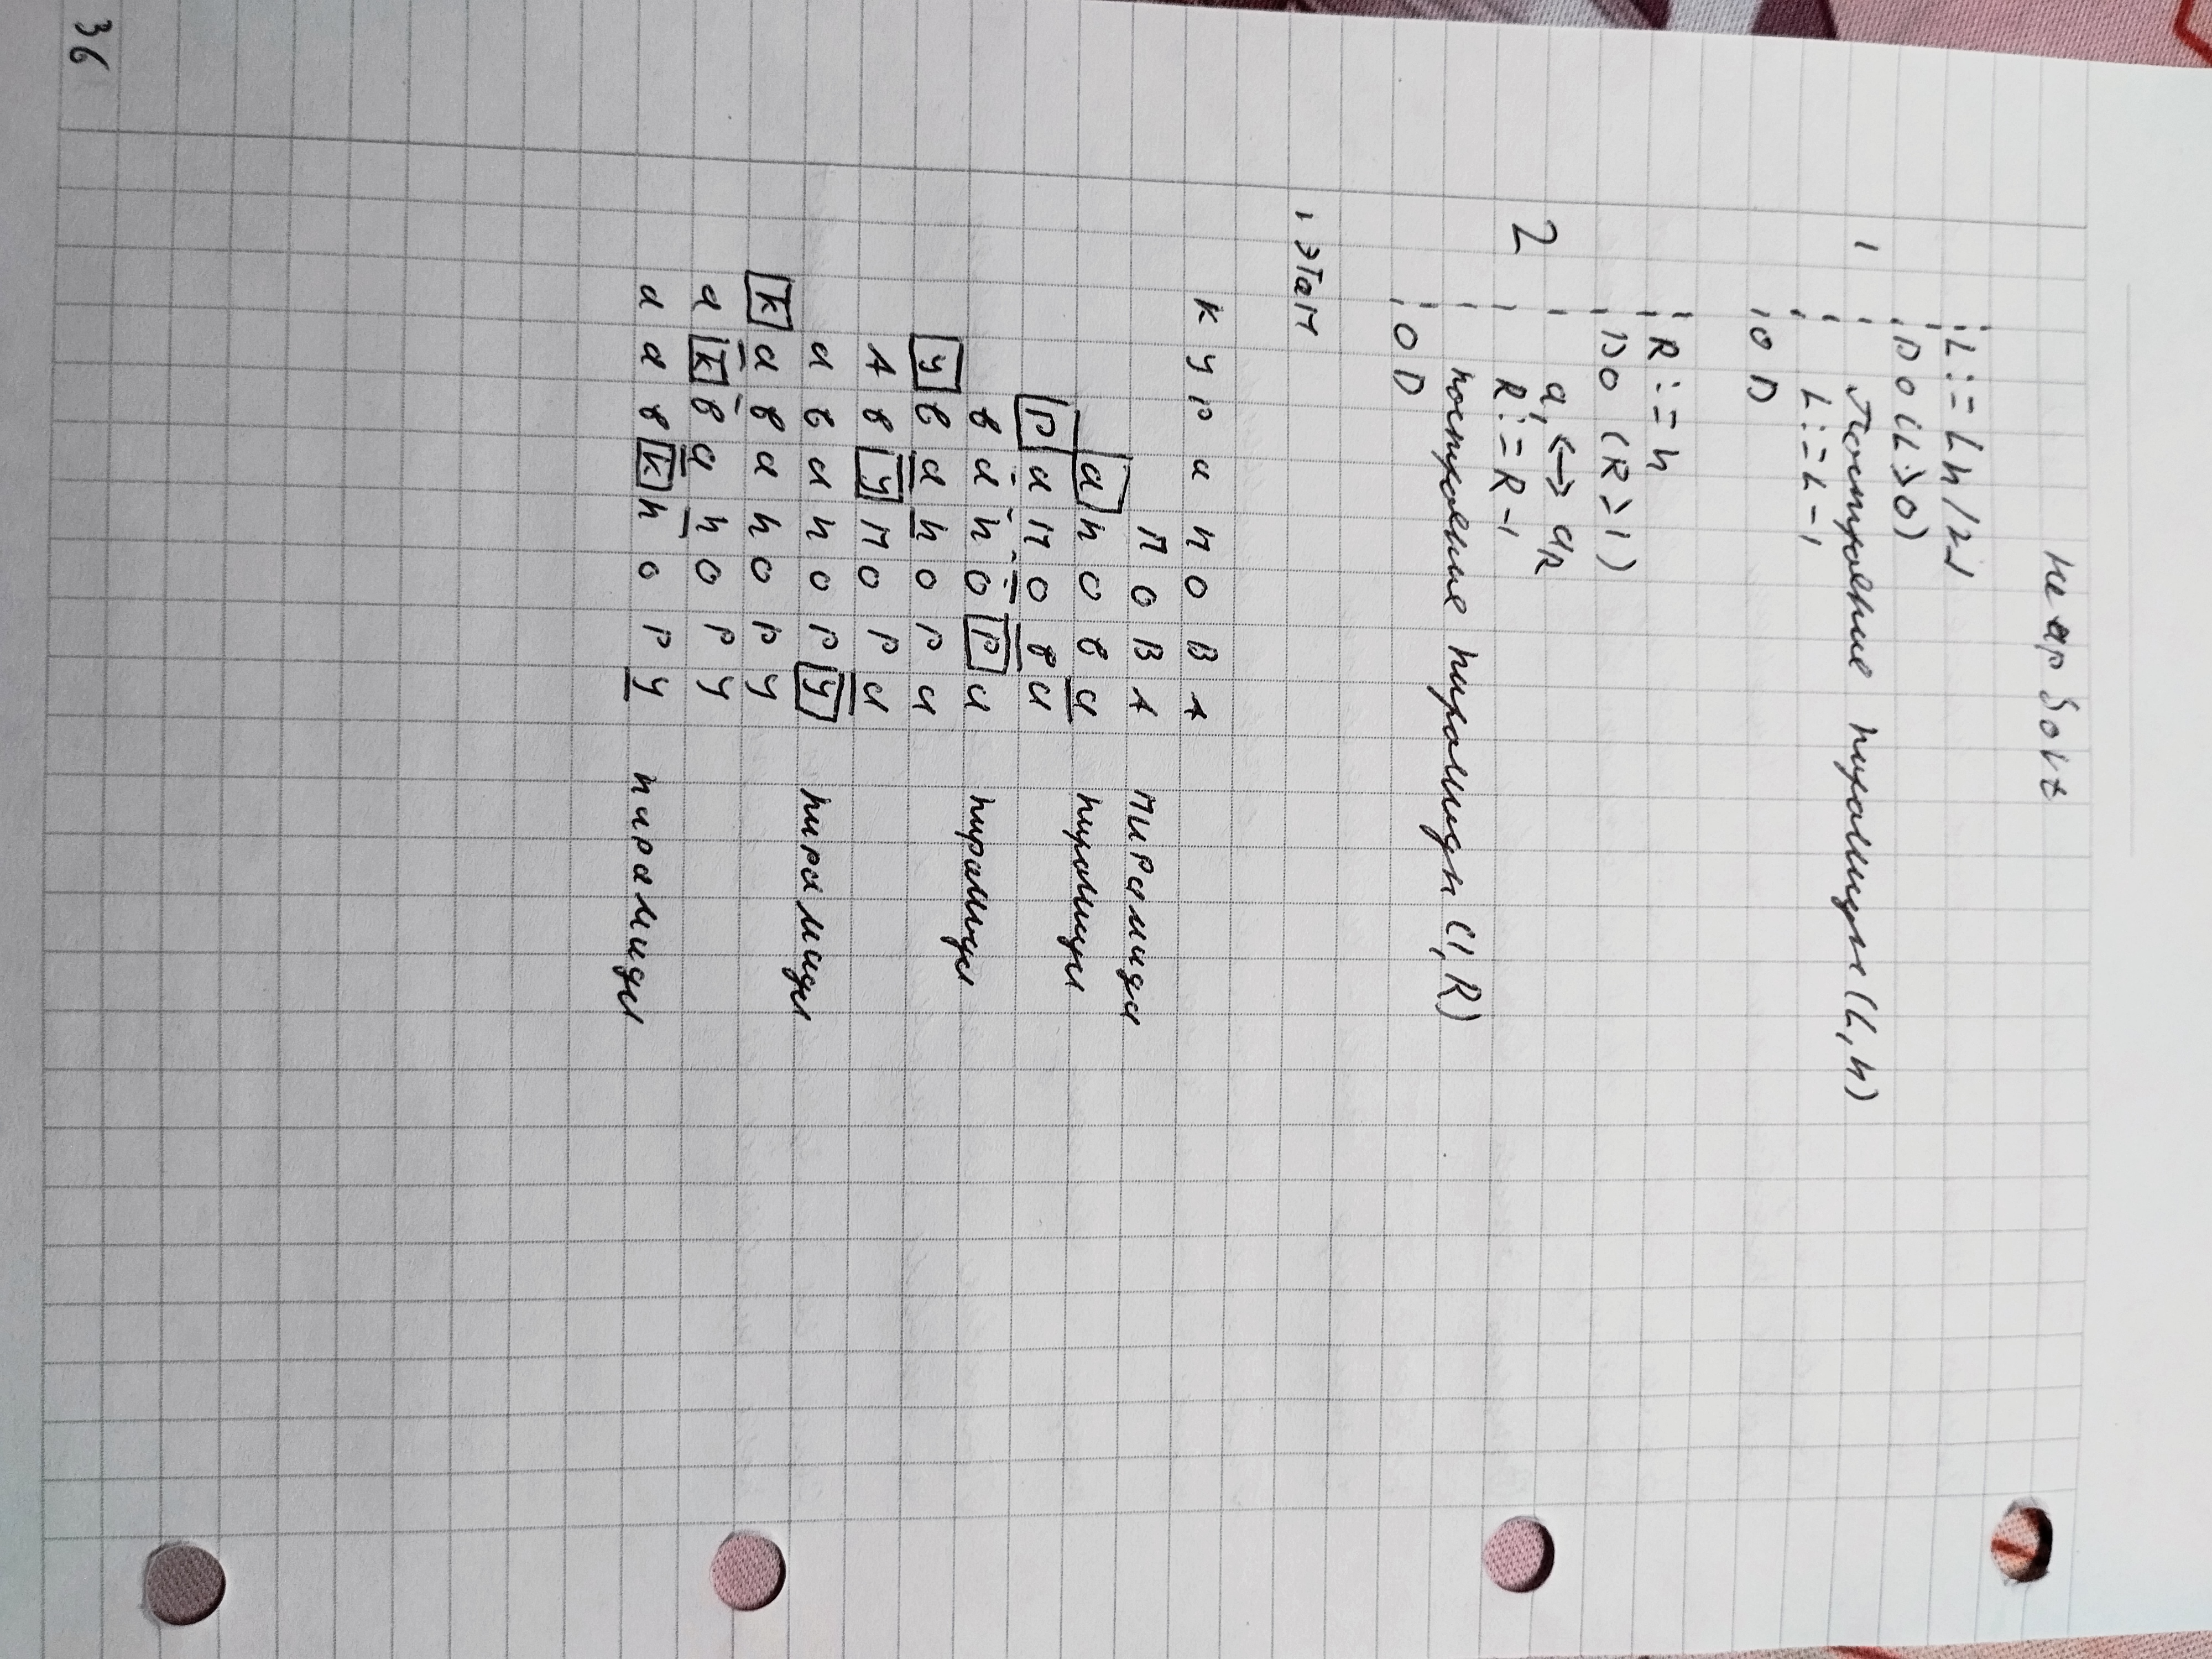 Heap Sort
L := ⌊n/2⌋
DO (L>0)
1 Построение пирамиды (L, n)
L := L-1
OD
R := n
DO (R≥1)
2 a₁ ↔ aR
R := R-1
построение пирамиды (1, R)
OD
1 этап
К У Р а П О В А
П О В А пирамида
а п о в а пирамида
Р а П о в а
в а п о Р а пирамида
У в а п о Р а
А в У П о Р а
а в а п о Р У пирамида
К а в а п о Р У
а К в а п о Р У
а а в К п о Р У пирамида
36